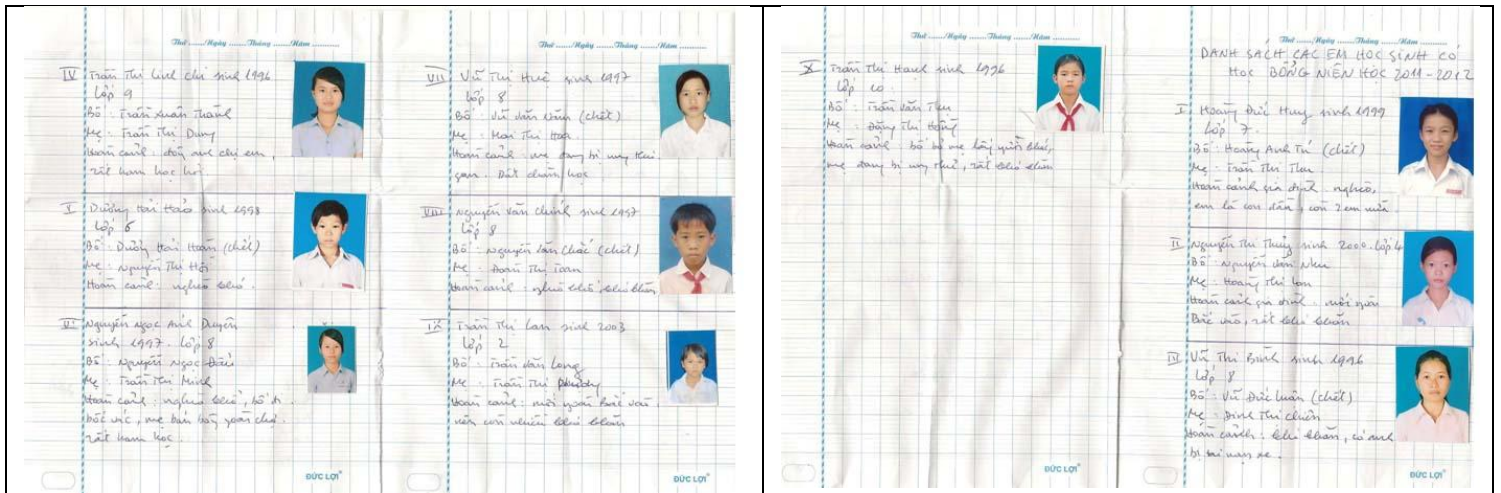 Thứ ......./Ngày ........Tháng ........Năm ............
IV Trần Thị Linh Chi sinh 1996
Lớp 9
Bố : Trần Xuân Thành
Mẹ : Trần Thị Dung
Hoàn cảnh : đông anh chị em,
rất ham học hỏi.
V Dương Hải Hào sinh 1998
Lớp 6
Bố : Dương Hải Hoàn (chết)
Mẹ : Nguyễn Thị Hội
Hoàn cảnh : nghèo khó.
VI Nguyễn Ngọc Anh Duyên
sinh 1997. Lớp 8
Bố : Nguyễn Ngọc
Mẹ : Trần Thị Minh
Hoàn cảnh : nghèo khó, bố đi
bốc vác, mẹ bán hàng ngoài chợ.
rất ham học.
ĐỨC LỢI
Thứ ......./Ngày ........Tháng ........Năm ............
VII Vũ Thị Huệ sinh 1997
Lớp 8
Bố : Vũ Văn Năm (chết)
Mẹ : Mai Thị Hoa.
Hoàn cảnh : mẹ đang bị ung thư
gan. Rất chăm học.
VIII Nguyễn Văn Chính sinh 1997
Lớp 8
Bố : Nguyễn Văn Chắc (chết)
Mẹ : Đoàn Thị Toan
Hoàn cảnh : nghèo khổ, khó khăn
IX Trần Thị Lan sinh 2003
Lớp 2
Bố : Trần Văn Long
Mẹ : Trần Thị Phượng
Hoàn cảnh : mới ngoài Bắc vào,
nên còn nhiều khó khăn
ĐỨC LỢI
Thứ ......./Ngày ........Tháng ........Năm ............
X Trần Thị Hạnh sinh 1996
Lớp 10.
Bố : Trần Văn
Mẹ : Đặng Thị Hồng
Hoàn cảnh : bố bỏ mẹ lấy người khác,
mẹ đang bị ung thư, rất khó khăn
ĐỨC LỢI
Thứ ......./Ngày ........Tháng ........Năm ............
DANH SÁCH CÁC EM HỌC SINH CÓ
HỌC BỔNG NIÊN HỌC 2011 - 2012
I Hoàng Đức Huy sinh 1999
Lớp 7.
Bố : Hoàng Anh Tú (chết)
Mẹ : Trần Thị Thu
Hoàn cảnh gia đình : nghèo,
em là con đầu, còn 2 em nữa.
II Nguyễn Thị Thủy sinh 2000. Lớp 4
Bố : Nguyễn Văn Như
Mẹ : Hoàng Thị Lan
Hoàn cảnh gia đình : mới ngoài
Bắc vào, rất khó khăn
III Vũ Thị Bình sinh 1996
Lớp 8
Bố : Vũ Đức Luân (chết)
Mẹ : Đinh Thị Chiên
Hoàn cảnh : khó khăn, có anh
bị tai nạn xe.
ĐỨC LỢI